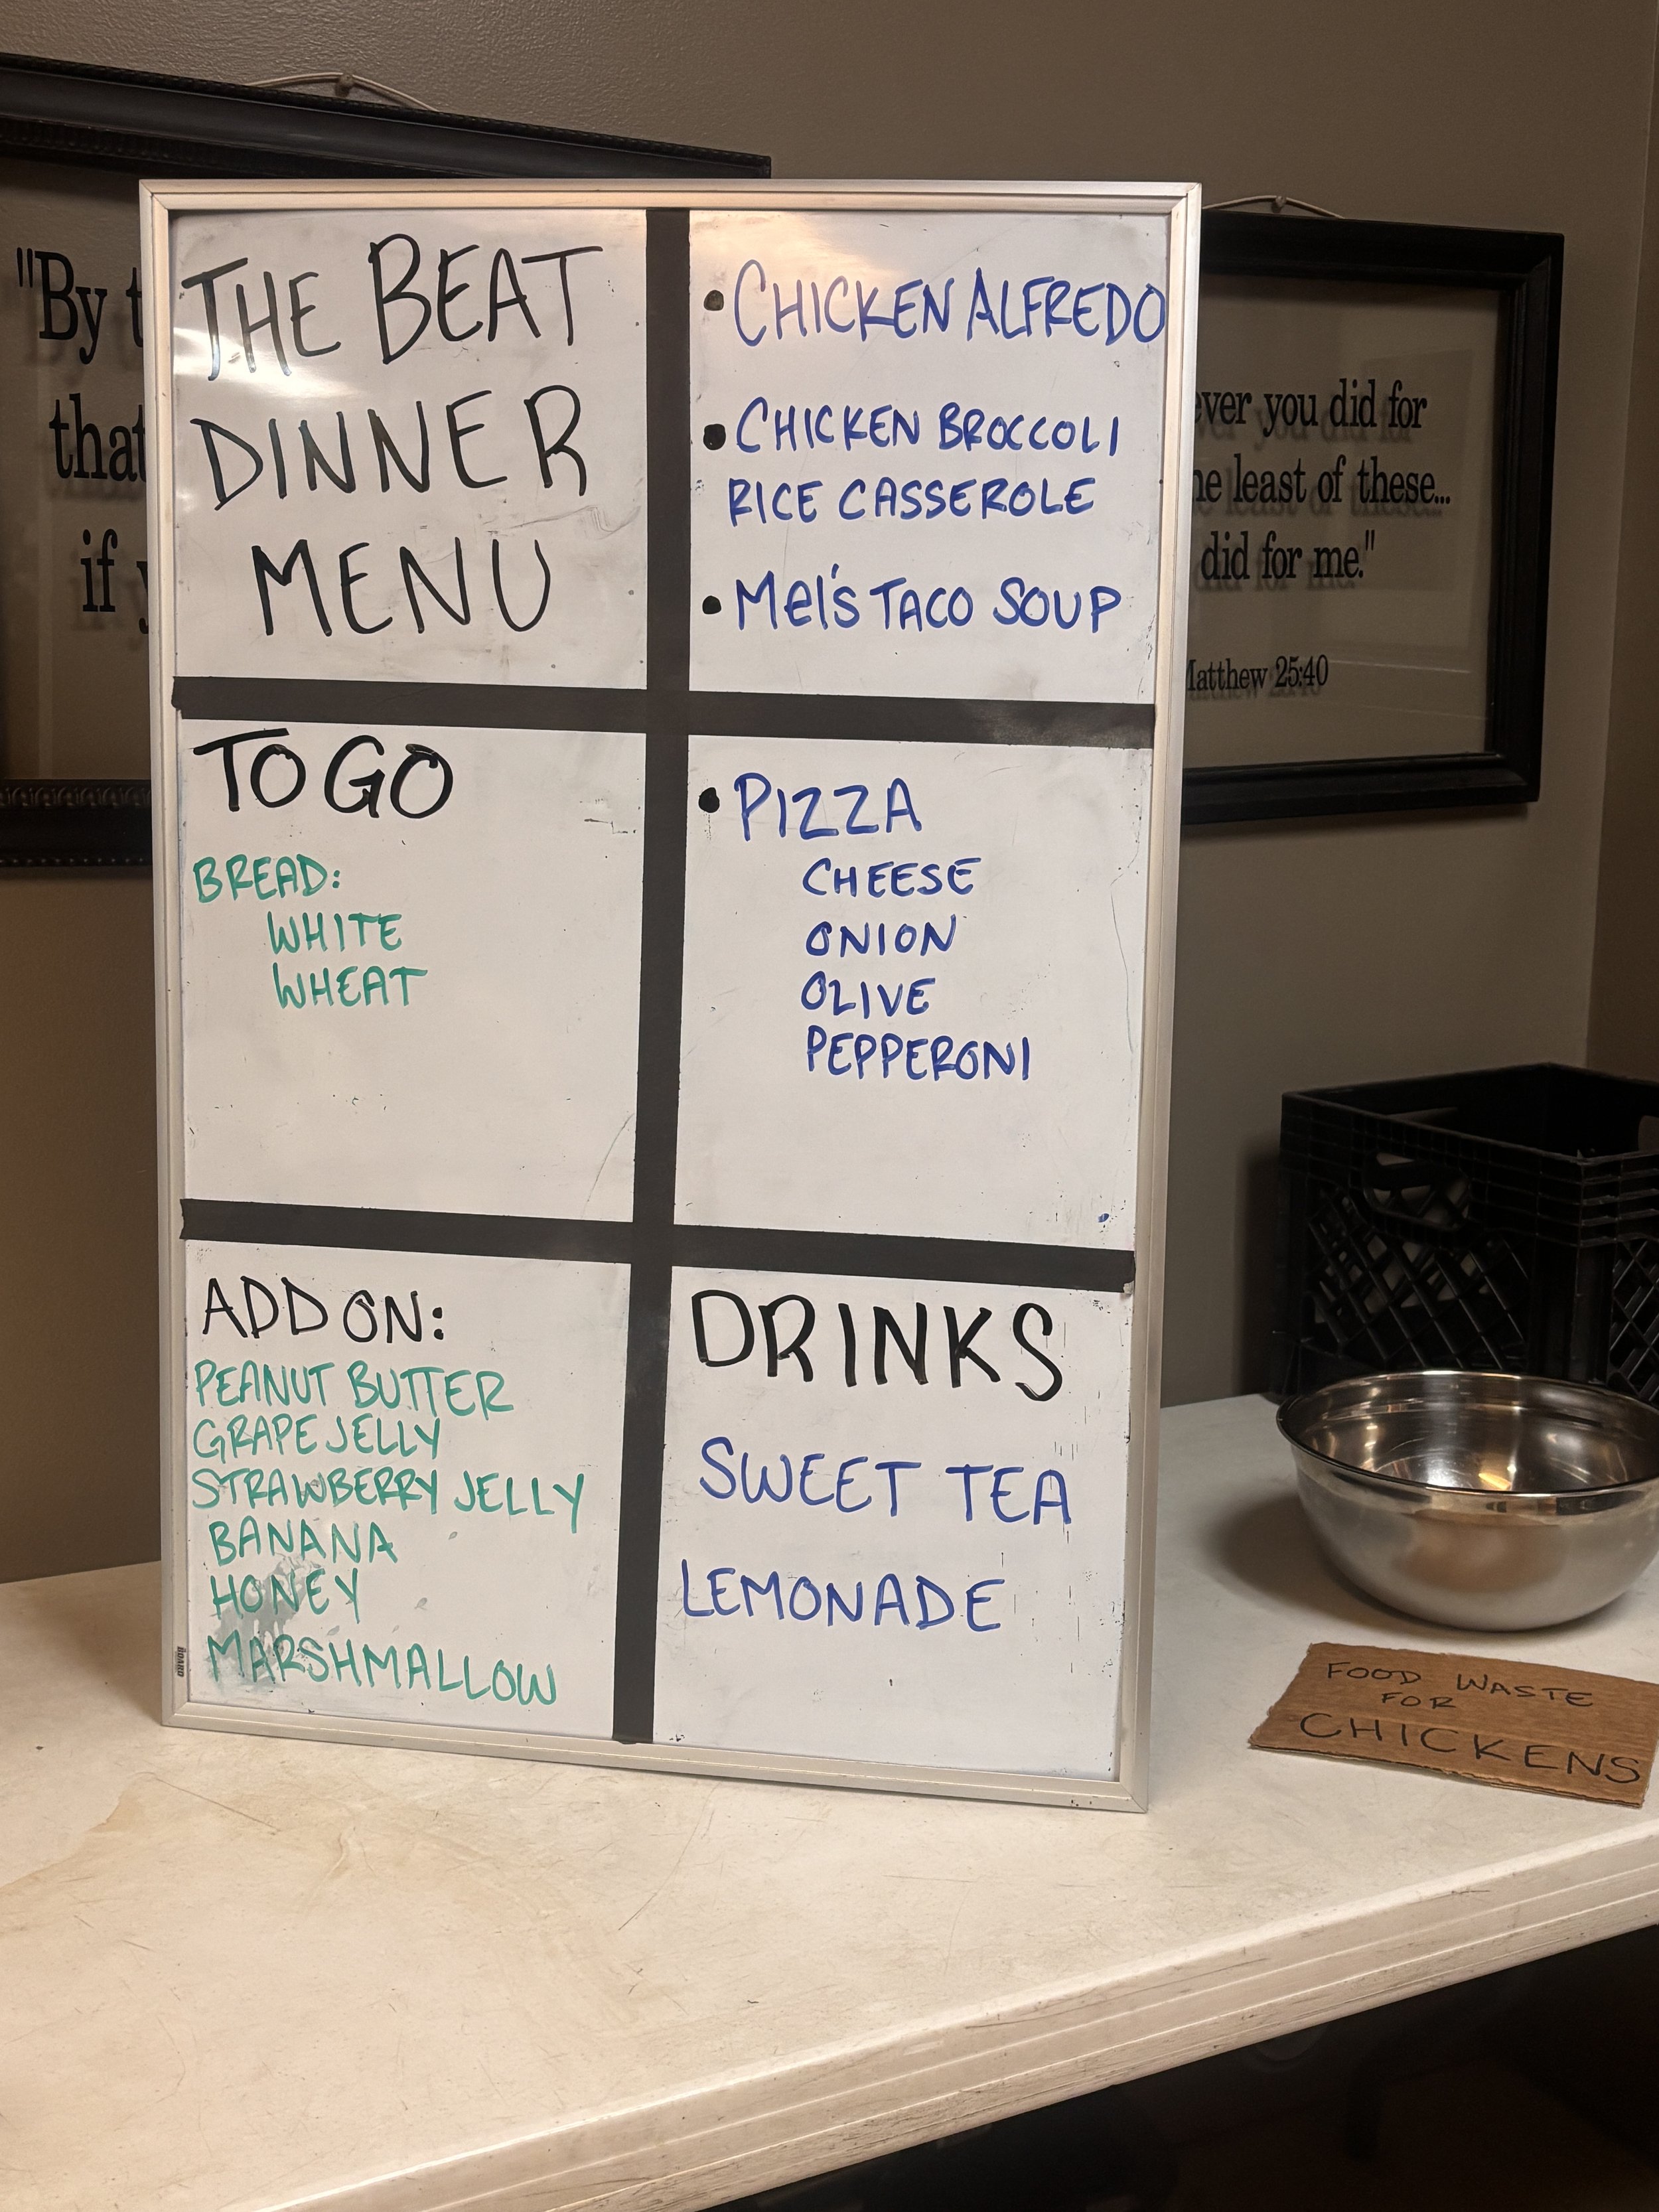 THE BEAT
DINNER
MENU
• CHICKEN ALFREDO
• CHICKEN BROCCOLI
RICE CASSEROLE
• Mel's TACO SOUP
TO GO
BREAD:
WHITE
WHEAT
• PIZZA
CHEESE
ONION
OLIVE
PEPPERONI
ADD ON:
PEANUT BUTTER
GRAPE JELLY
STRAWBERRY JELLY
BANANA
HONEY
MARSHMALLOW
DRINKS
SWEET TEA
LEMONADE
"By
that
if
you did for
least of these...
did for me."
Matthew 25:40
FOOD WASTE
FOR
CHICKENS